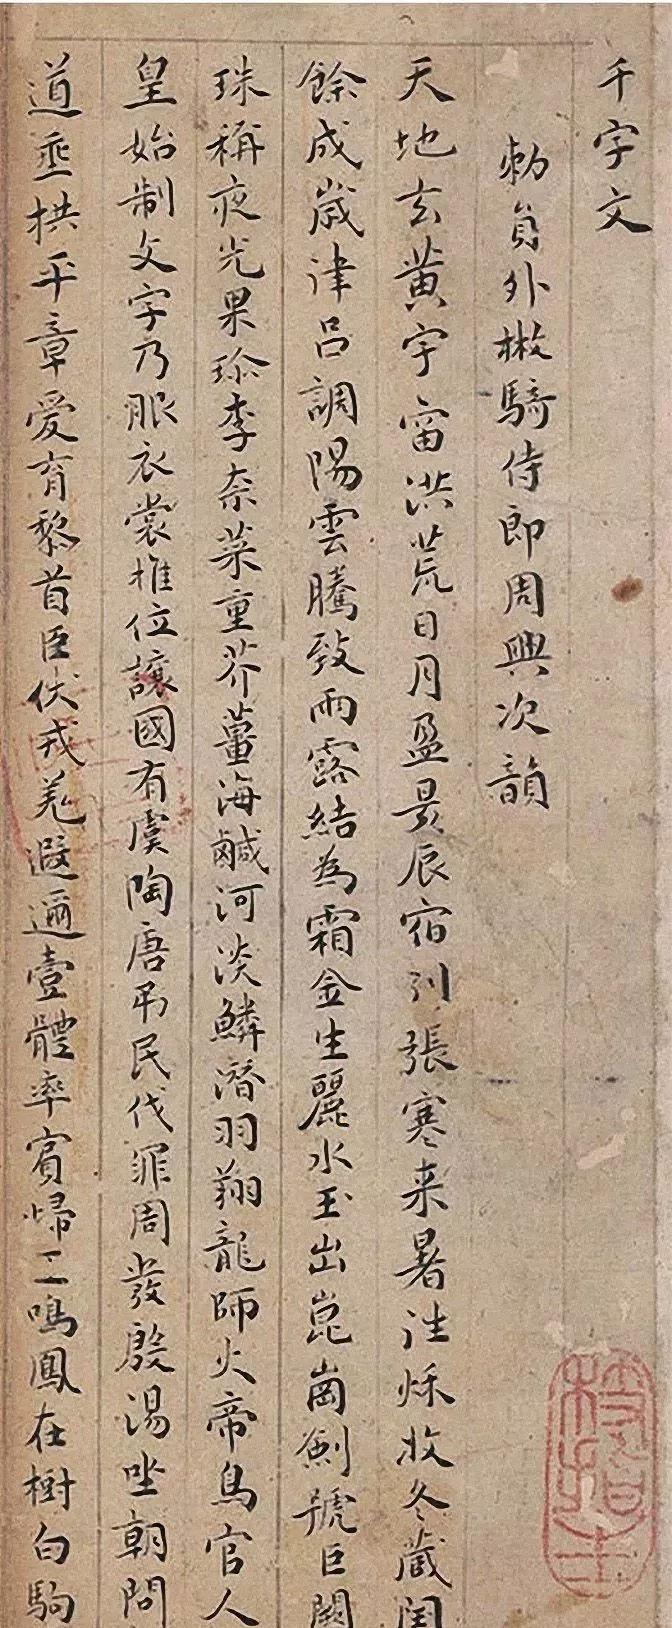 千字文
勅員外散騎侍郎周興次韻
天地玄黃宇宙洪荒日月盈昃辰宿列張寒来暑往秌收冬蔵閏
餘成嵗律呂調陽雲騰致雨露結為霜金生麗水玉出崑崗劍號巨闕
珠稱夜光果珎李柰菜重芥薑海鹹河淡鱗潛羽翔龍師火帝鳥官人
皇始制文字乃服衣裳推位讓國有虞陶唐吊民伐罪周發殷湯坐朝問
道垂拱平章愛育黎首臣伏戎羌遐邇壹體率賓歸王鳴鳳在樹白駒